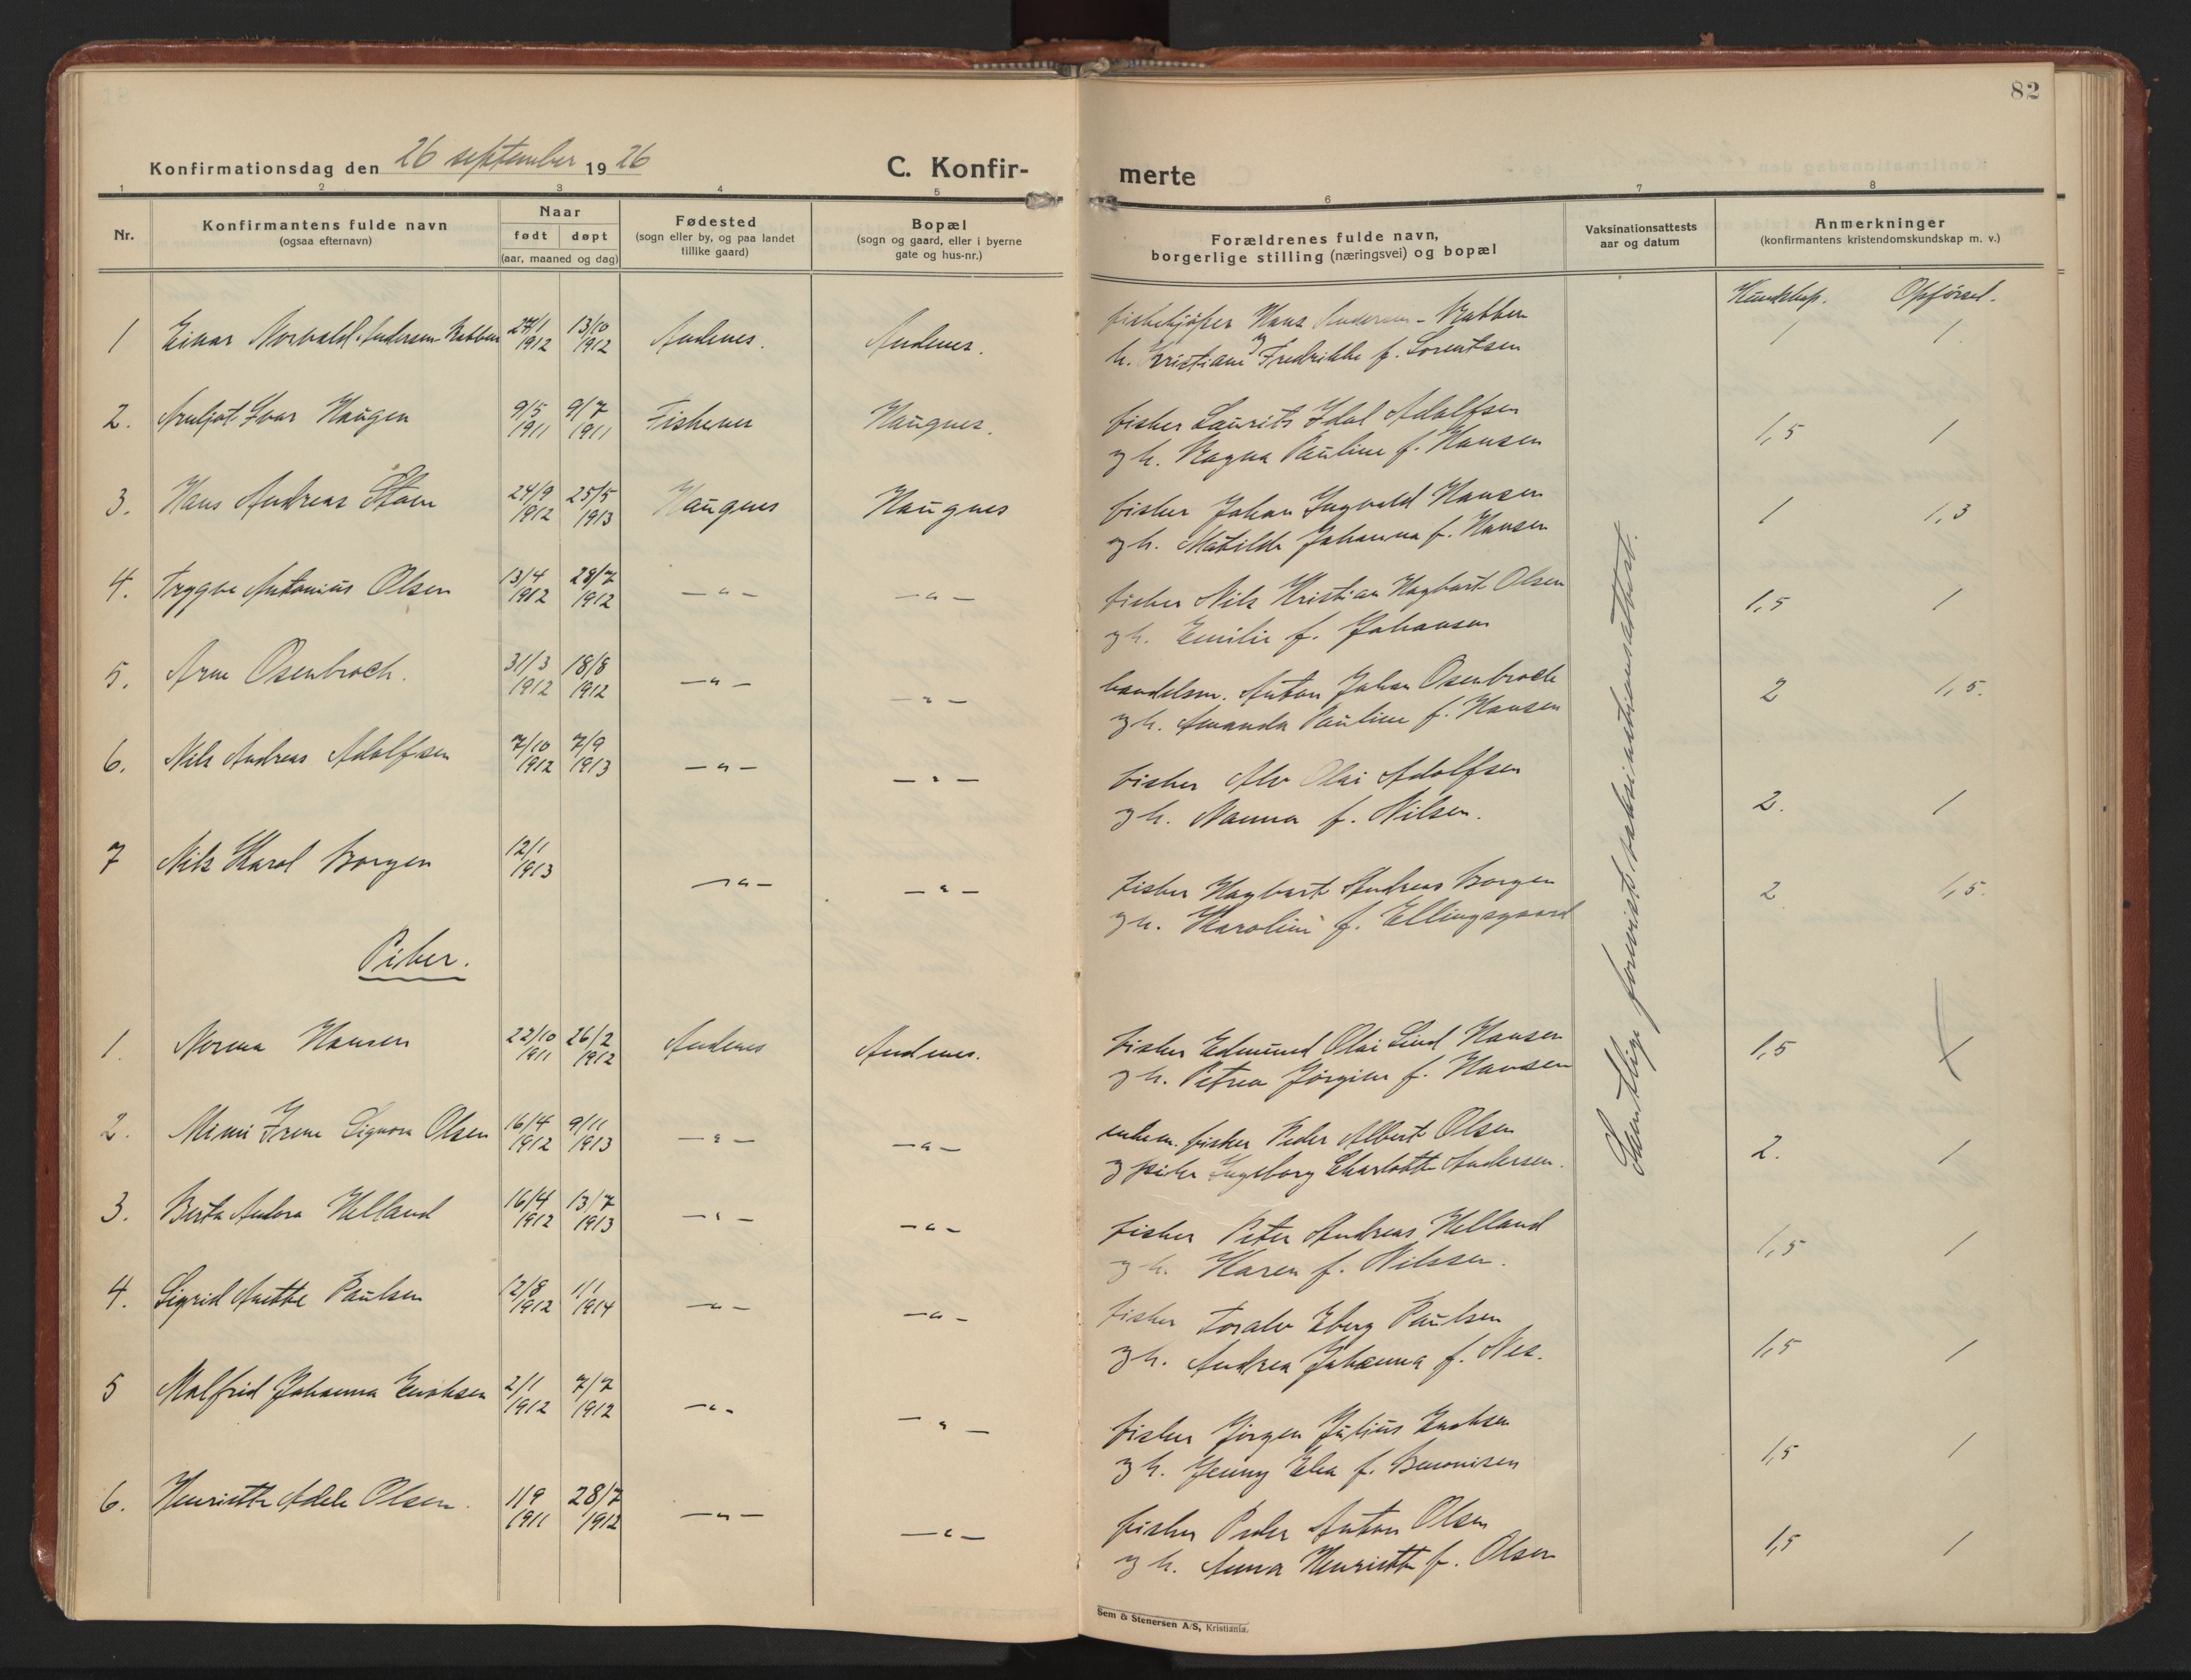 82
Konfirmationsdag den 26 september 1926
C. Konfir-
merte
1 2 3 4 5 6 7 8
Nr.
Konfirmantens fulde navn
(ogsaa efternavn)
Naar
født døpt
(aar, maaned og dag)
Fødested
(sogn eller by, og paa landet
tillike gaard)
Bopæl
(sogn og gaard, eller i byerne
gate og hus-nr.)
Forældrenes fulde navn,
borgerlige stilling (næringsvei) og bopæl
Vaksinationsattests
aar og datum
Anmerkninger
(konfirmantens kristendomskundskap m. v.)
Kundskap. Opførsel.
1 Einar Norvald Andersen Rabben 27/1 1912 13/10 1912 Andenes. Andenes. fiskekjøper Hans Andersen-Rabben
og h. Kristiane Fredrikke f. Lorentsen 1 1
2. Arnljot Ivar Haugen 9/5 1911 9/7 1911 Fiskenes Haugnes. fisker Laurits Idal Adolfsen
og h. Ragna Pauline f. Hansen 1,5 1
3. Hans Andreas Stoen 24/9 1912 25/5 1913 Haugnes Haugnes fisker Johan Ingvald Hansen
og h. Matilde Johanna f. Hansen 1 1,3
4. Trygve Antonius Olsen 13/4 1912 28/7 1912 —"— —"— fisker Nils Kristian Hagbart Olsen
og h. Emilie f. Johansen 1,5 1
5. Arne Osenbroch. 31/3 1912 18/8 1912 —"— —"— handelsm. Anton Johan Osenbroch
og h. Amanda Pauline f. Hansen 2 1,5.
6. Nils Andreas Adolfsen 7/10 1912 7/9 1913 —"— —"— fisker Alv Olai Adolfsen
og h. Nanna f. Nilsen. 2. 1
7 Nils Karol Borgen 12/1 1913 —"— —"— fisker Hagbart Andreas Borgen
og h. Karoline f. Ellingsgaard 2 1,5.
Piker.
1. Norma Hansen 22/10 1911 26/2 1912 Andenes Andenes. fisker Edmund Olai Lind Hansen
og h. Petrea Jørgine f. Hansen 1,5 1
2. Mimi Irene Signora Olsen 16/4 1912 9/11 1913 —"— —"— fisker Peder Albert Olsen
og pike Ingeborg Charlotte Andersen. 2. 1
3. Berta Andora Helland 16/4 1912 13/7 1913 —"— —"— fisker Peter Andreas Helland
og h. Karen f. Nilssen. 1,5 1
4. Sigrid Anette Paulsen 12/8 1912 1/1 1914 —"— —"— fisker Toralv Eberg Paulsen
og h. Andrea Johanna f. Nes. 1,5 1
5 Malfrid Johanna Enoksen 2/1 1912 7/7 1912 —"— —"— fisker Jørgen Julius Enoksen
og h. Jenny Elea f. Benonisen 1,5 1
6. Henriette Adele Olsen. 1/9 1911 28/7 1912 —"— —"— fisker Peder Anton Olsen
og h. Anna Henriette f. Olsen 1,5 1
Samtlige forevist vaksinationsattest.
Sem & Stenersen A/S, Kristiania.